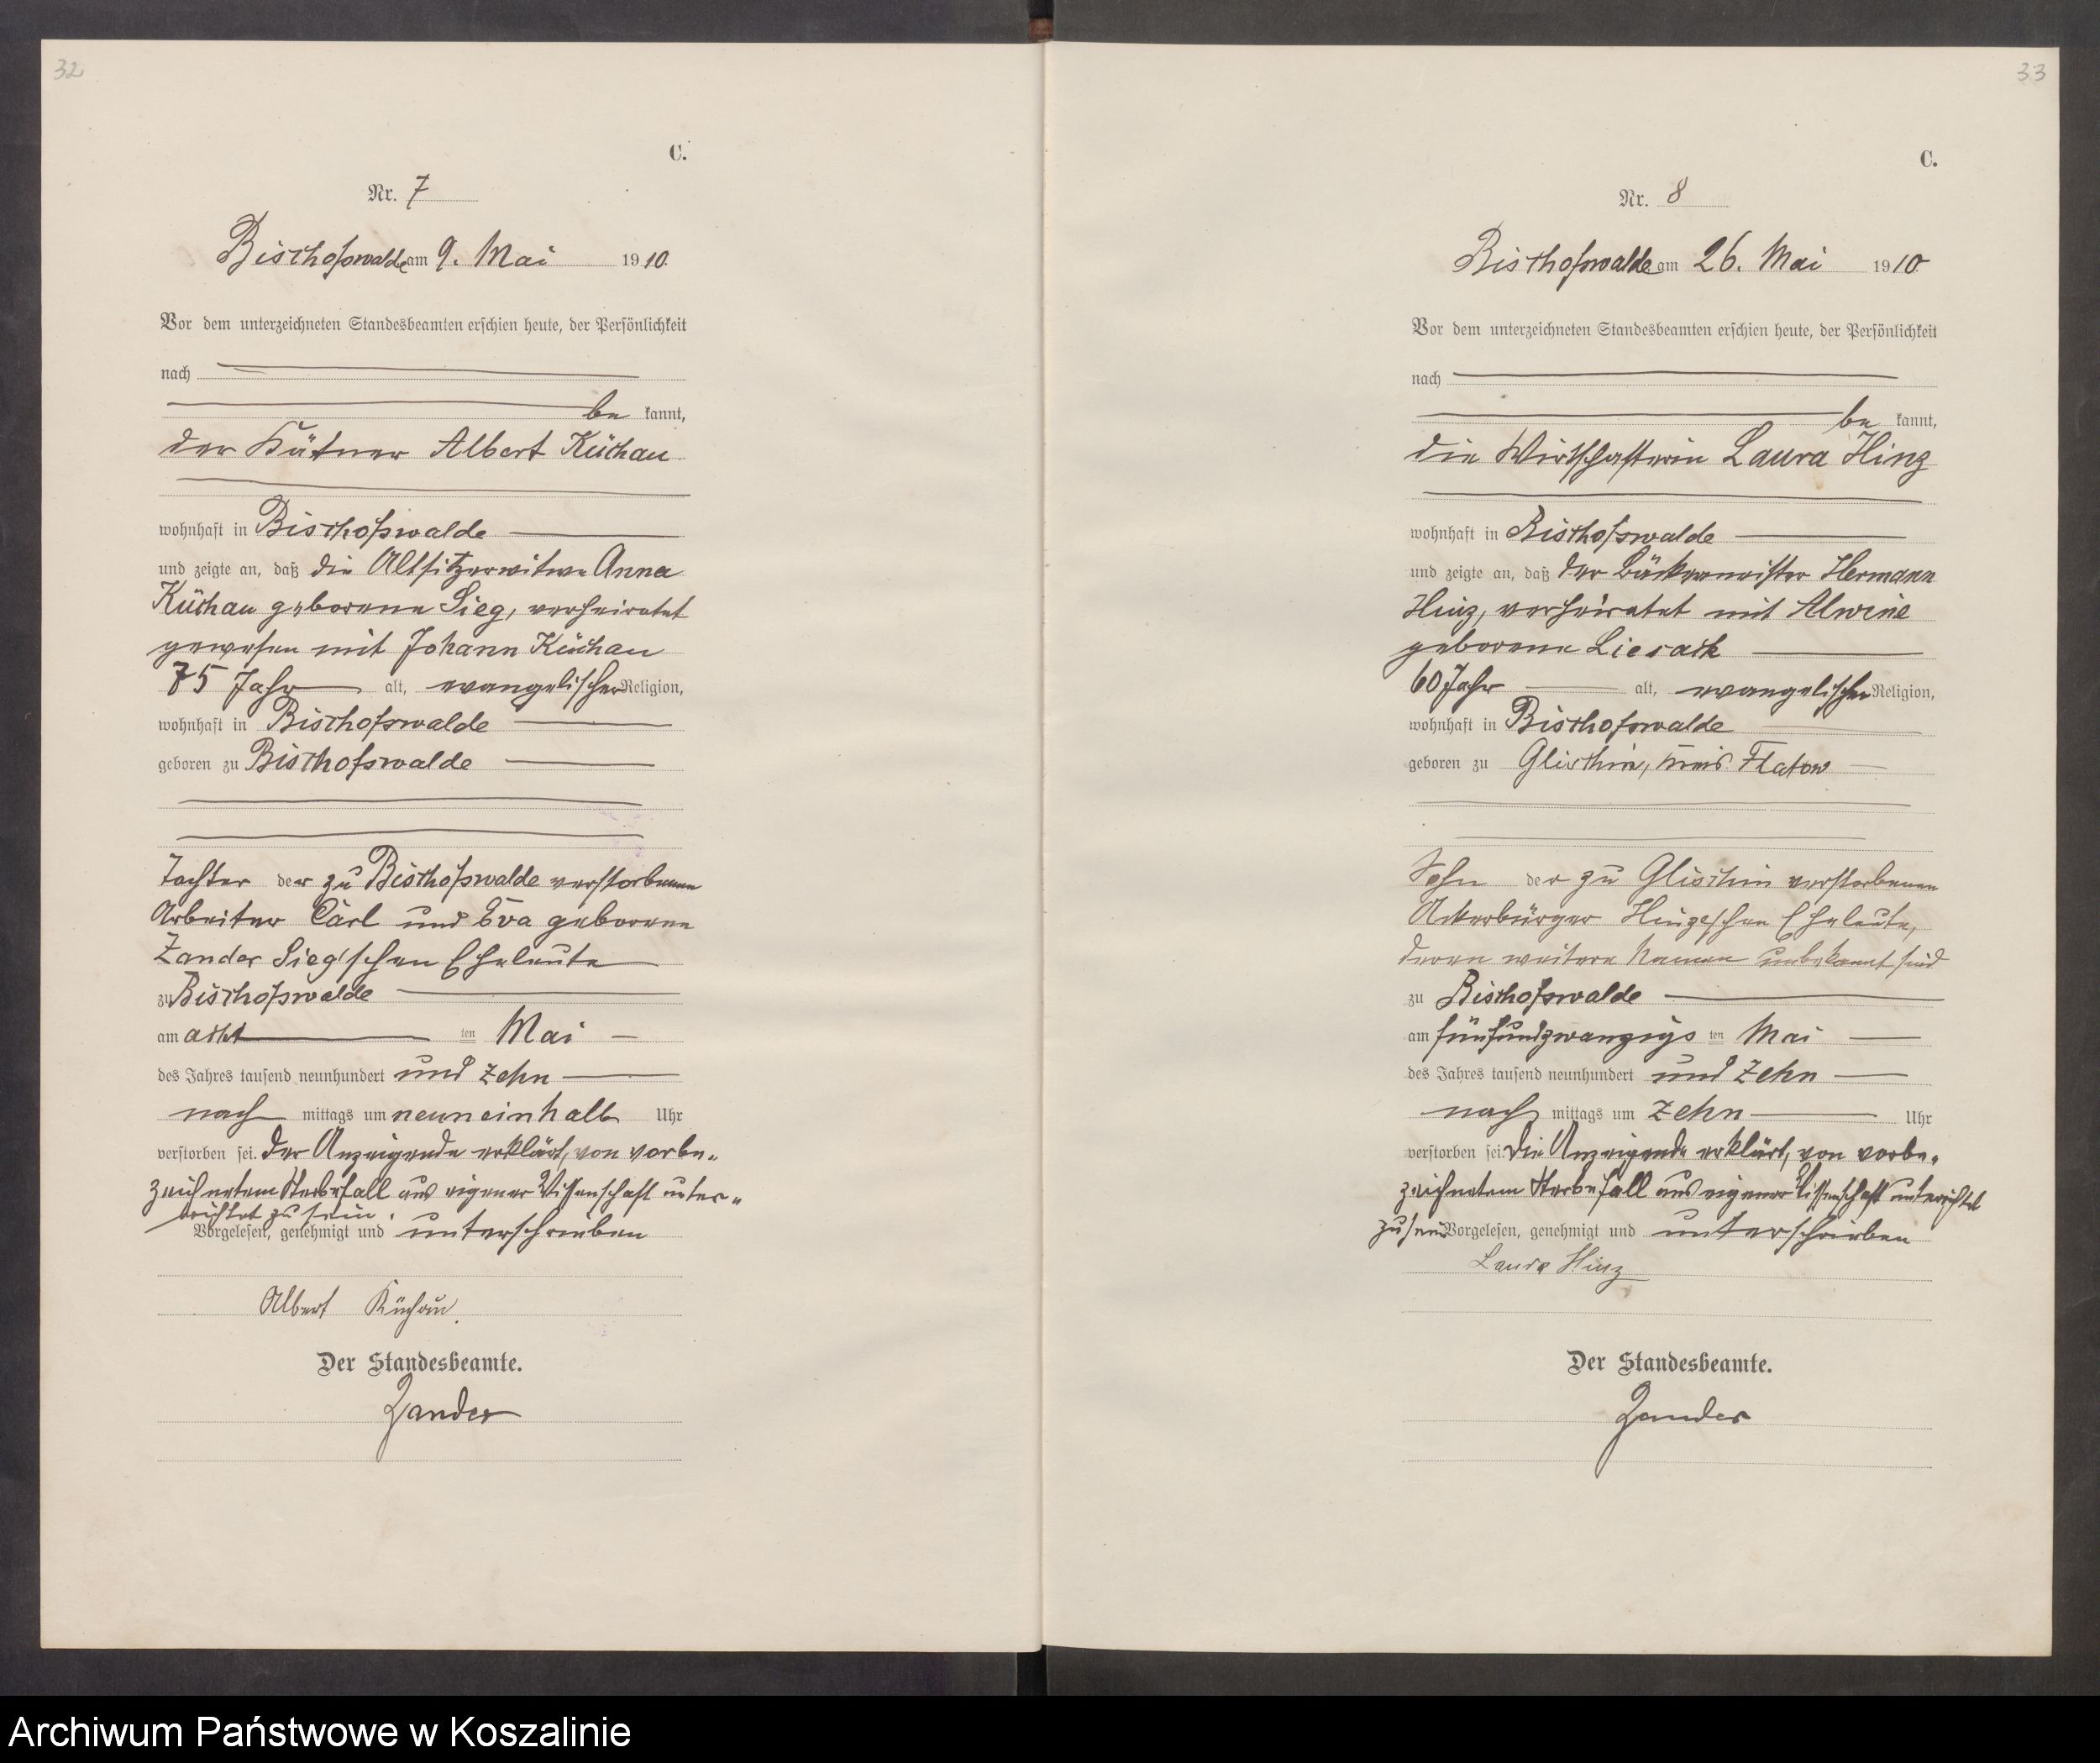 32
C.
Nr. 7
Bischofswalde am 9. Mai 1910.
Vor dem unterzeichneten Standesbeamten erschien heute, der Persönlichkeit
nach
be kannt,
der Kätner Albert Küchau
wohnhaft in Bischofswalde
und zeigte an, daß die Altsitzerwitwe Anna
Küchau geborene Sieg, verheiratet
gewesen mit Johann Küchau
75 Jahr alt, evangelischer Religion,
wohnhaft in Bischofswalde
geboren zu Bischofswalde
Tochter der zu Bischofswalde verstorbenen
Arbeiter Carl und Eva geborene
Zander Sieg'schen Eheleute
zu Bischofswalde
am acht ten Mai
des Jahres tausend neunhundert und zehn
nach mittags um neuneinhalb Uhr
verstorben sei. Der Anzeigende erklärt, von vorbe-
zeichnetem Sterbefall aus eigener Wissenschaft unter-
richtet zu sein.
Vorgelesen, genehmigt und unterschrieben
Albert Küchau.
Der Standesbeamte.
Zander
33
C.
Nr. 8
Bischofswalde am 26. Mai 1910
Vor dem unterzeichneten Standesbeamten erschien heute, der Persönlichkeit
nach
be kannt,
die Wirtschafterin Laura Hinz
wohnhaft in Bischofswalde
und zeigte an, daß der Bäckermeister Hermann
Hinz, verheiratet mit Alwine
geborene Liesack
60 Jahr alt, evangelischer Religion,
wohnhaft in Bischofswalde
geboren zu Glischin, Kreis Flatow
Sohn der zu Glischin verstorbenen
Ackerbürger Hinzeschen Eheleute,
deren weitere Namen unbekannt sind
zu Bischofswalde
am fünfundzwanzigs ten Mai
des Jahres tausend neunhundert und zehn
nach mittags um zehn Uhr
verstorben sei. Die Anzeigende erklärt, von vorbe-
zeichnetem Sterbefall aus eigener Wissenschaft unterrichtet
zu sein Vorgelesen, genehmigt und unterschrieben
Laura Hinz
Der Standesbeamte.
Zander
Archiwum Państwowe w Koszalinie